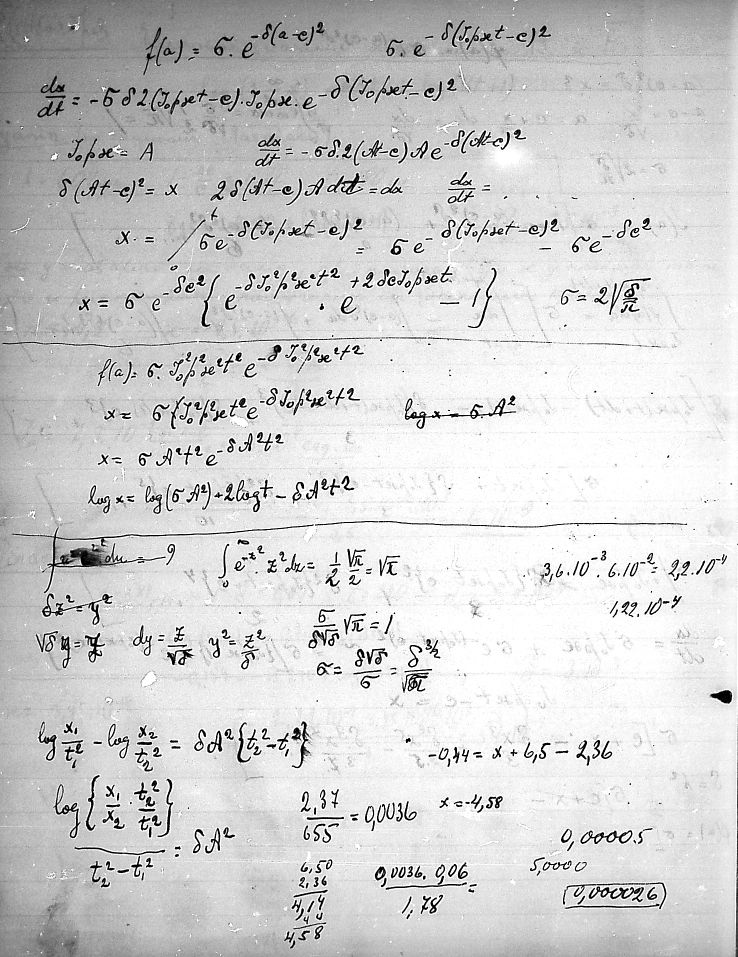 f(a) = σ. e^{-δ(a-c)²}    σ. e^{-δ(J₀pϰt-c)²}
dx/dt = -σδ2(J₀pϰt-c).J₀pϰ. e^{-δ(J₀pϰt-c)²}
J₀pϰ = A    dx/dt = -σδ.2(At-c)Ae^{-δ(At-c)²}
δ(At-c)² = x    2δ(At-c)A dt = dx    dx/dt =
x. = /₀ᵗ σe^{-δ(J₀pϰt-c)²} = σe^{-δ(J₀pϰt-c)²} - σe^{-δc²}
x = σ e^{-δc²} { e^{-δJ₀²p²ϰ²t²} . e^{+2δcJ₀pϰt} - 1 }    σ = 2√(δ/π)
f(a) = σ. J₀²p²ϰ²t² e^{-δJ₀²p²ϰ²t²}
x = σ{J₀²p²ϰ²t² e^{-δJ₀p²ϰ²t²}    log x = σ.A²
x = σA²t² e^{-δA²t²}
log x = log(σA²) + 2 log t - δA²t²
∫₀^∞ e^{-z²}. z²dz = 1/2 √π/2 = √π    3,6.10⁻³. 6.10⁻² = 2,2.10⁻⁴
δz² = y²    1,22.10⁻⁴
√δ y = z    dy = z/√δ    y² = z²/δ    σ/(δ√δ) √π = 1
σ = δ√δ/σ = δ^{3/2}/√π
log x₁/t₁² - log x₂/t₂² = δA²{t₂²-t₁²}    -0,44 = x + 6,5 - 2,36
log{x₁/x₂ . t₂²/t₁²} / (t₂²-t₁²) = δA²    2,37/655 = 0,0036    x = -4,58
0,0000.5
6,50    0,0036. 0,06 / 1,78 =    5,0000
2,36    0,000026
4,14
44
4,58